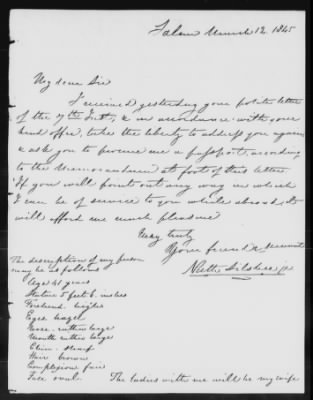 Salem March 12. 1845
My dear Sir
I received yesterday your polite letter
of the 7th Inst, & in accordance with your
kind offer, take the liberty to address you again
& ask you to procure me a passport, according
to the Memorandum at foot of this letter
If you will point out any way in which
I can be of service to you while abroad, it
will afford me much pleasure
Very truly
Your friend &
Nath Silsbee jr
The description of my person
may be as follows
Age 41 years
Stature 5 feet 6 inches
Forehead
Eyes hazel
Nose - rather large
Mouth rather large
Chin - sharp
Hair brown
Complexion fair
Face oval.
The ladies with me will be my wife